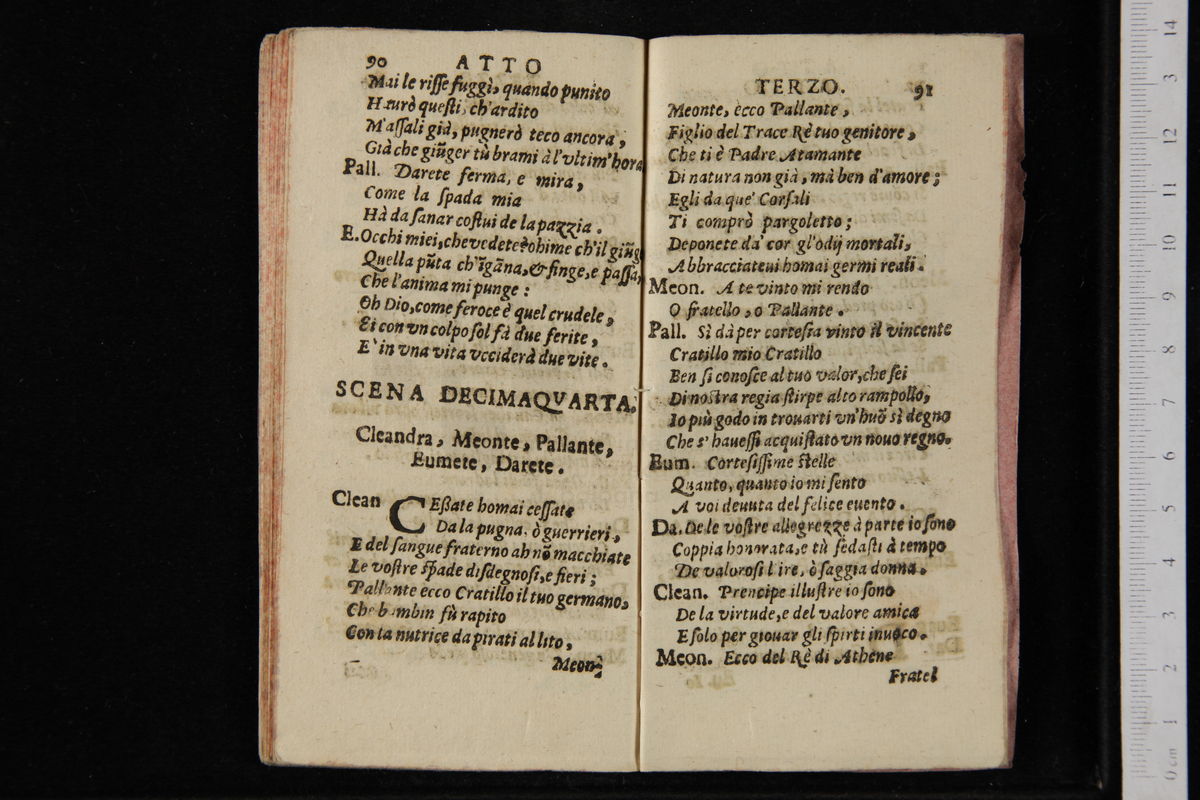 90 ATTO
Mai le riſſe fuggì, quando punito
Haurò queſti, ch'ardito
M'aſſali già, pugnerò teco ancora;
Già che giũger tù brami à l'vltim'hora
Pall. Darete ferma, e mira,
Come la ſpada mia
Hà da ſanar coſtui de la pazzia.
E. Occhi miei, che vedete? ohime ch'il giũge
Quella pũta ch'ĩgãna, & finge, e paſſa,
Che l'anima mi punge:
Oh Dio, come feroce è quel crudele,
Ei con vn colpo ſol fà due ferite,
E' in vna vita vcciderà due vite.
SCENA DECIMAQVARTA.
Cleandra, Meonte, Pallante,
Eumete, Darete.
Clean CEßate homai ceſſate
Da la pugna, ò guerrieri,
E del ſangue fraterno ah nõ macchiate
Le voſtre ſpade diſdegnoſi, e fieri;
Pallante ecco Cratillo il tuo germano,
Che bambin fù rapito
Con la nutrice da pirati al lito,
Meon-
TERZO. 91
Meonte, ecco Pallante,
Figlio del Trace Rè tuo genitore,
Che ti è Padre Atamante
Di natura non già, mà ben d'amore;
Egli da que' Corſali
Ti comprò pargoletto;
Deponete da' cor gl'odij mortali,
Abbracciateui homai germi reali.
Meon. A te vinto mi rendo
O fratello, o Pallante.
Pall. Sì dà per corteſia vinto il vincente
Cratillo mio Cratillo
Ben ſi conoſce al tuo valor, che ſei
Di noſtra regia ſtirpe alto rampollo,
Io più godo in trouarti vn'huõ sì degno
Che s' haueſſi acquiſtato vn nouo regno.
Eum. Corteſiſſime ſtelle
Quanto, quanto io mi ſento
A voi deuuta del felice euento.
Da. De le voſtre allegrezze à parte io ſono
Coppia honorata, e tù ſedaſti à tempo
De valoroſi l'ire, ò ſaggia donna.
Clean. Prencipe illuſtre io ſono
De la virtude, e del valore amica
E ſolo per giouar gli ſpirti inuoco.
Meon. Ecco del Rè di Athene
Fratel